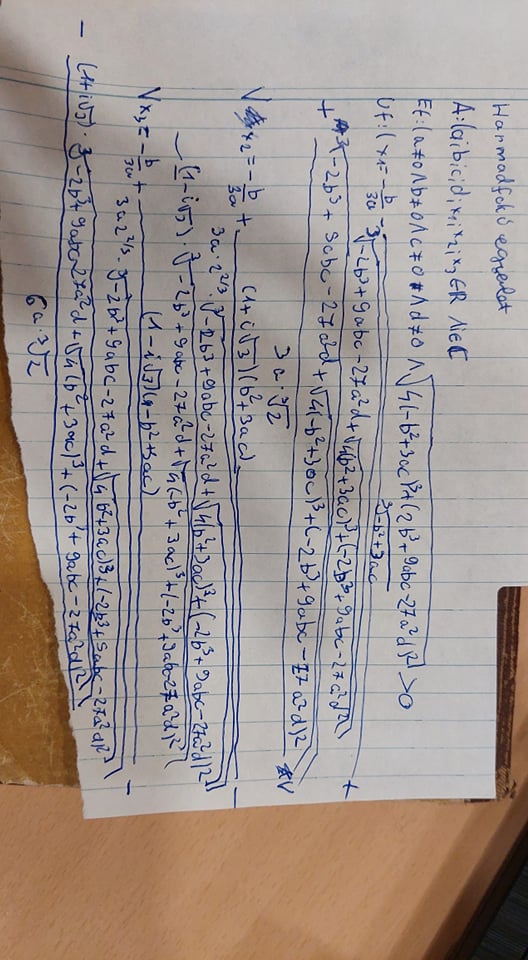 Harmadfokú egyenlet
A: (a;b;c;d;x₁;x₂;x₃∈R ∧i∈C
Ef: (a≠0∧b≠0∧c≠0∧d≠0 ∧√4(-b²+3ac)³+(2b³+9abc-27a²d)² >0
Uf: (x₁=-b/3a - ∛2(-b²+3ac) +
3a·∛-2b³+9abc-27a²d+√4(-b²+3ac)³+(-2b³+9abc-27a²d)²
+ ∛-2b³+9abc-27a²d+√4(-b²+3ac)³+(-2b³+9abc-27a²d)² ∨
3a·∛2
∨ x₂=-b/3a + (1+i√3)(b²+3ac) -
3a·2^2/3·∛-2b³+9abc-27a²d+√4(b²+3ac)³+(-2b³+9abc-27a²d)²
-(1-i√3)·∛-2b³+9abc-27a²d+√4(-b²+3ac)³+(-2b³+9abc-27a²d)²
∨ x₃=-b/3a + (1-i√3)(-b²+3ac) -
3a2^2/3·∛-2b³+9abc-27a²d+√4(b²+3ac)³+(-2b³+9abc-27a²d)²
- (1+i√3)·∛-2b³+9abc-27a²d+√4(b²+3ac)³+(-2b³+9abc-27a²d)²
6a·∛2